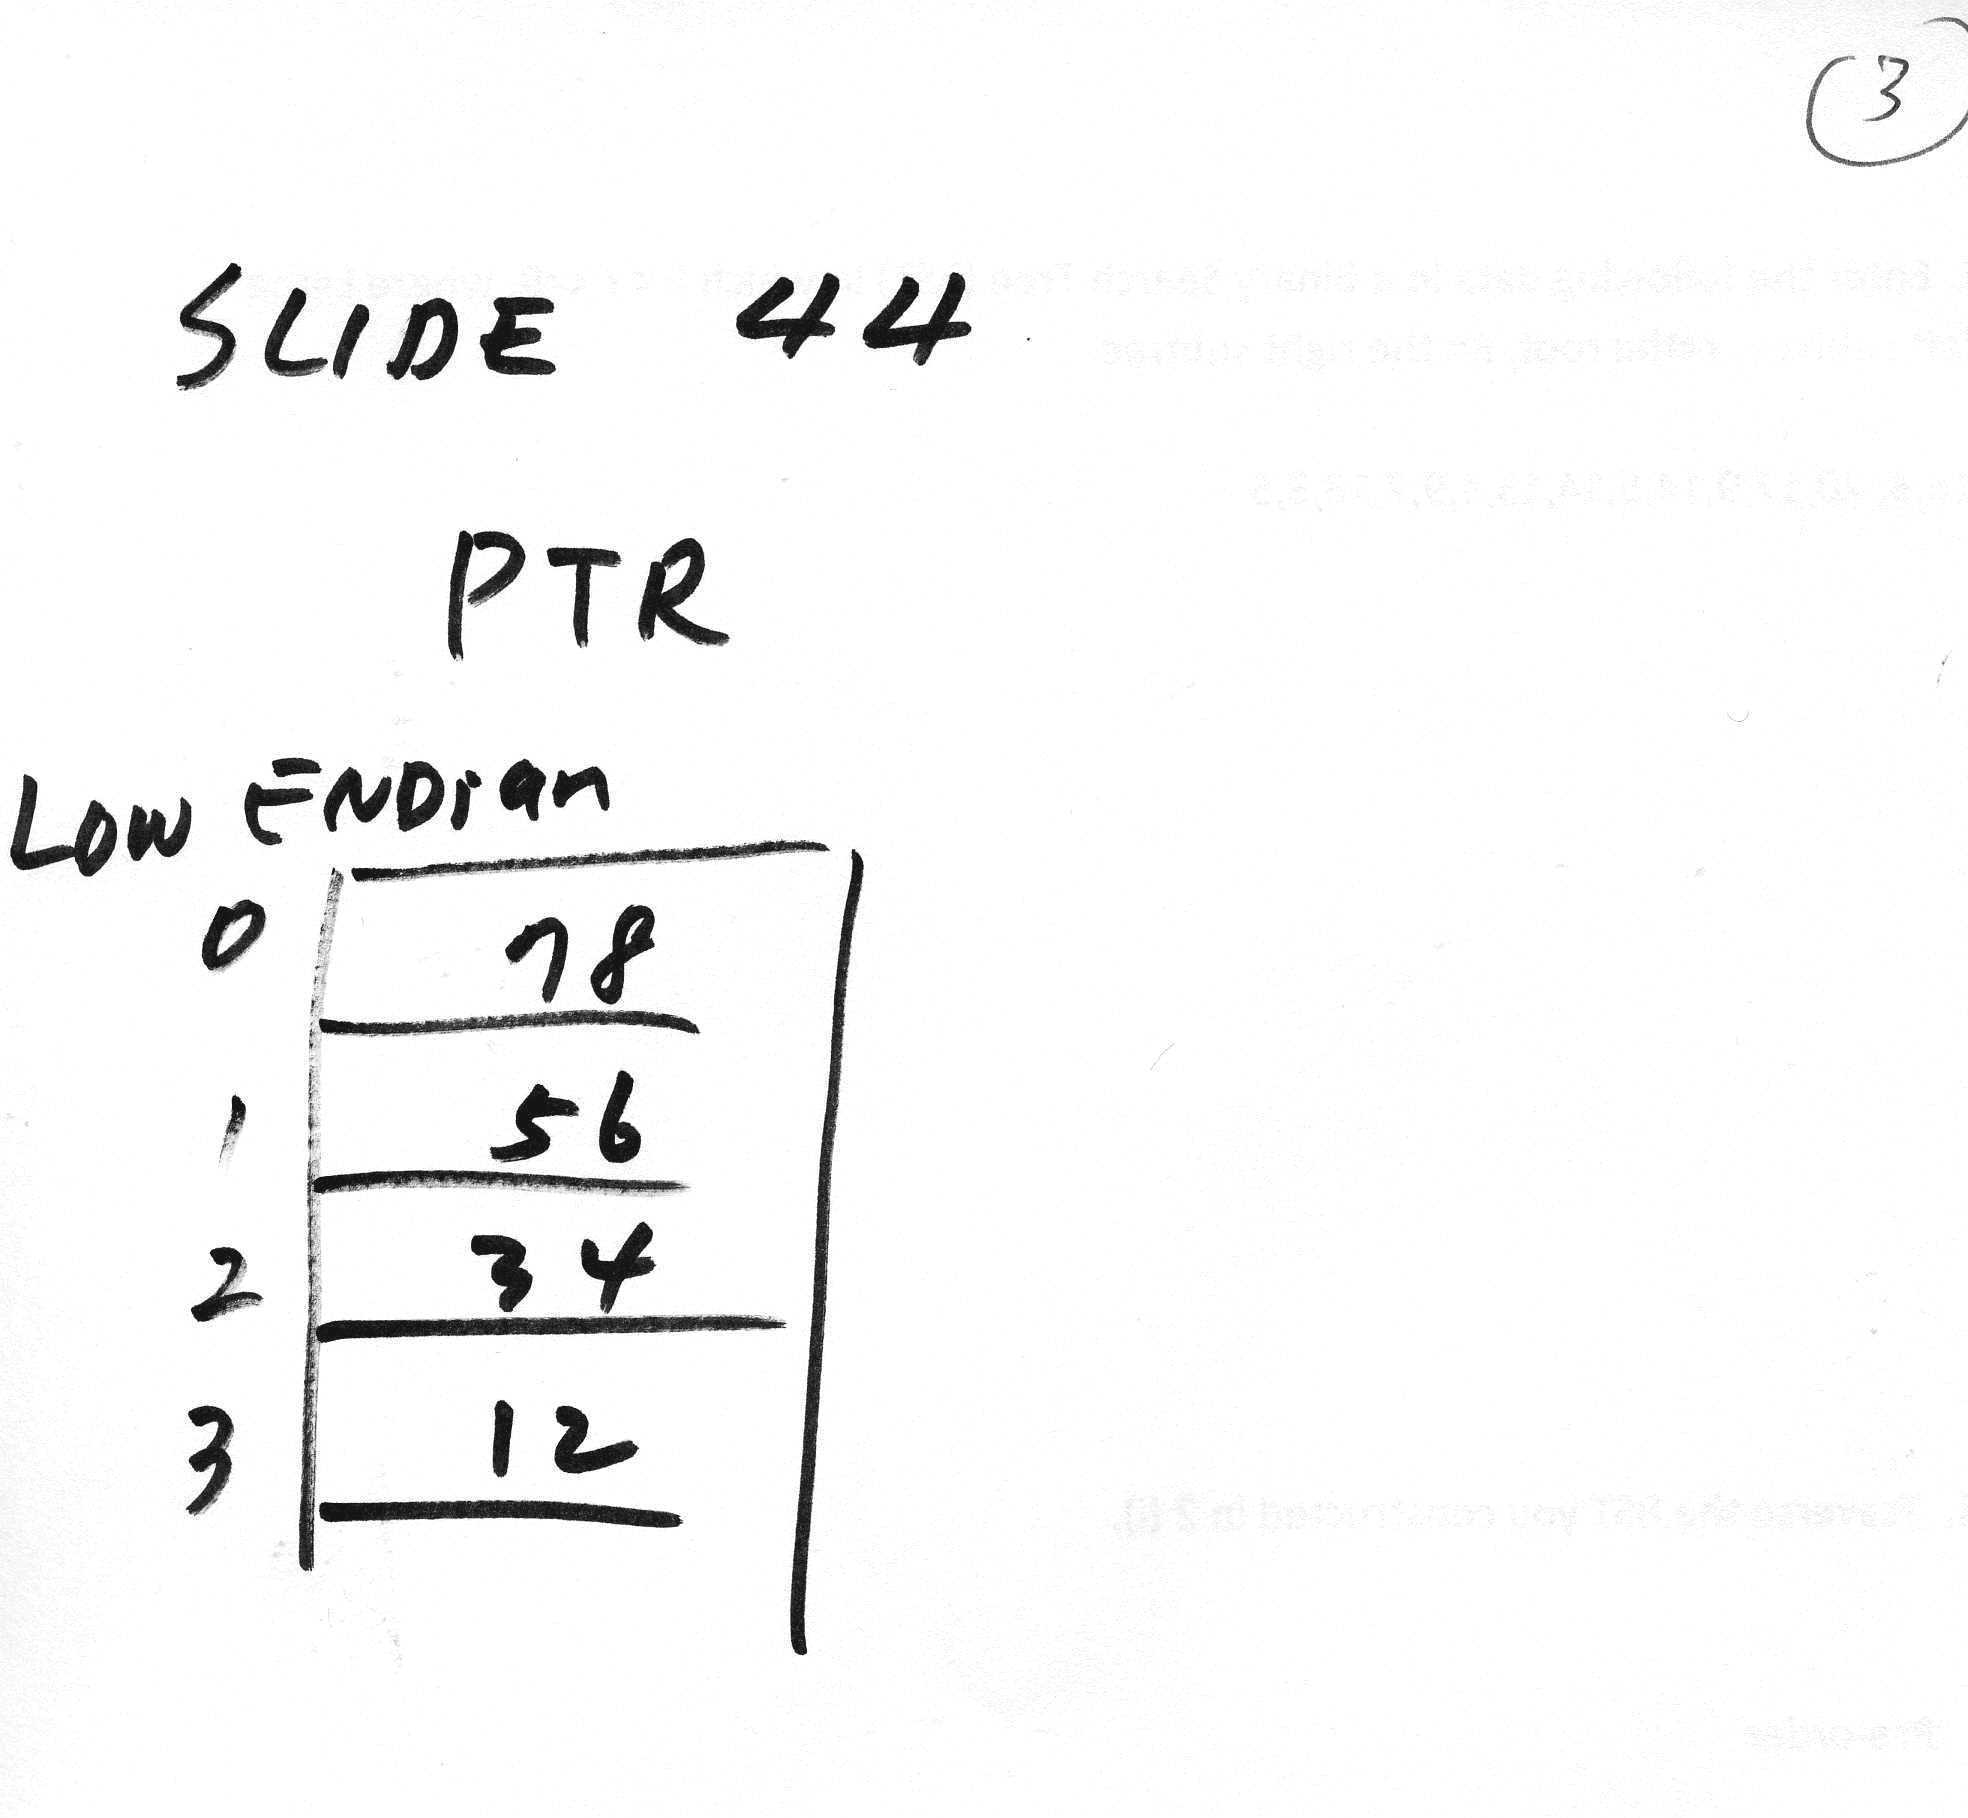 3
SLIDE 44
PTR
LOW ENDian
0 78
1 56
2 34
3 12